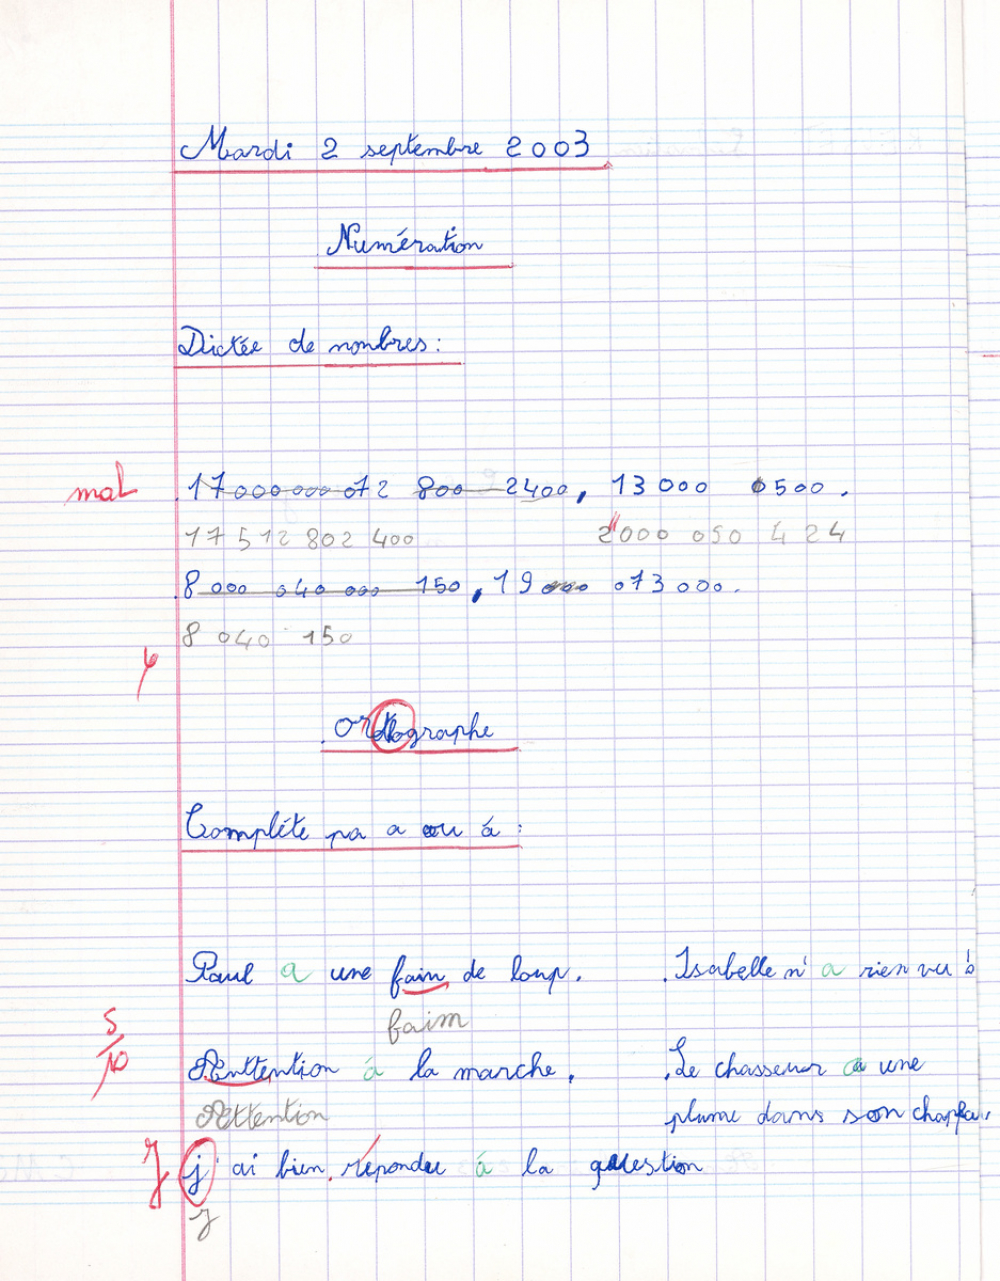 Mardi 2 septembre 2003
Numération
Dictée de nombres :
mal 17 000 000 072 800 2400, 13 000 0500.
17 512 802 400 2 000 050 424
8 000 040 000 150, 19 000 073 000.
8 040 150
Orthographe
Complète pa a ou à :
Paul a une fain de loup. Isabelle n' a rien vu !
faim
5/10
Anttention à la marche. Le chasseur a une
Attention plume dans son chapeau
j' ai bien répondu à la question
J